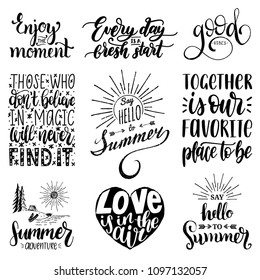 Enjoy
the
moment
Every day
is a
fresh start
good
VIBES
THOSE WHO
don't believe
IN MAGIC
will never
FIND IT.
SAY
HELLO
to
Summer
TOGETHER
is our
FAVORITE
place to be
Summer
ADVENTURE
LOVE
is in the
air
SAY
hello
TO
Summer
shutterstock
IMAGE ID: 1097132057
www.shutterstock.com